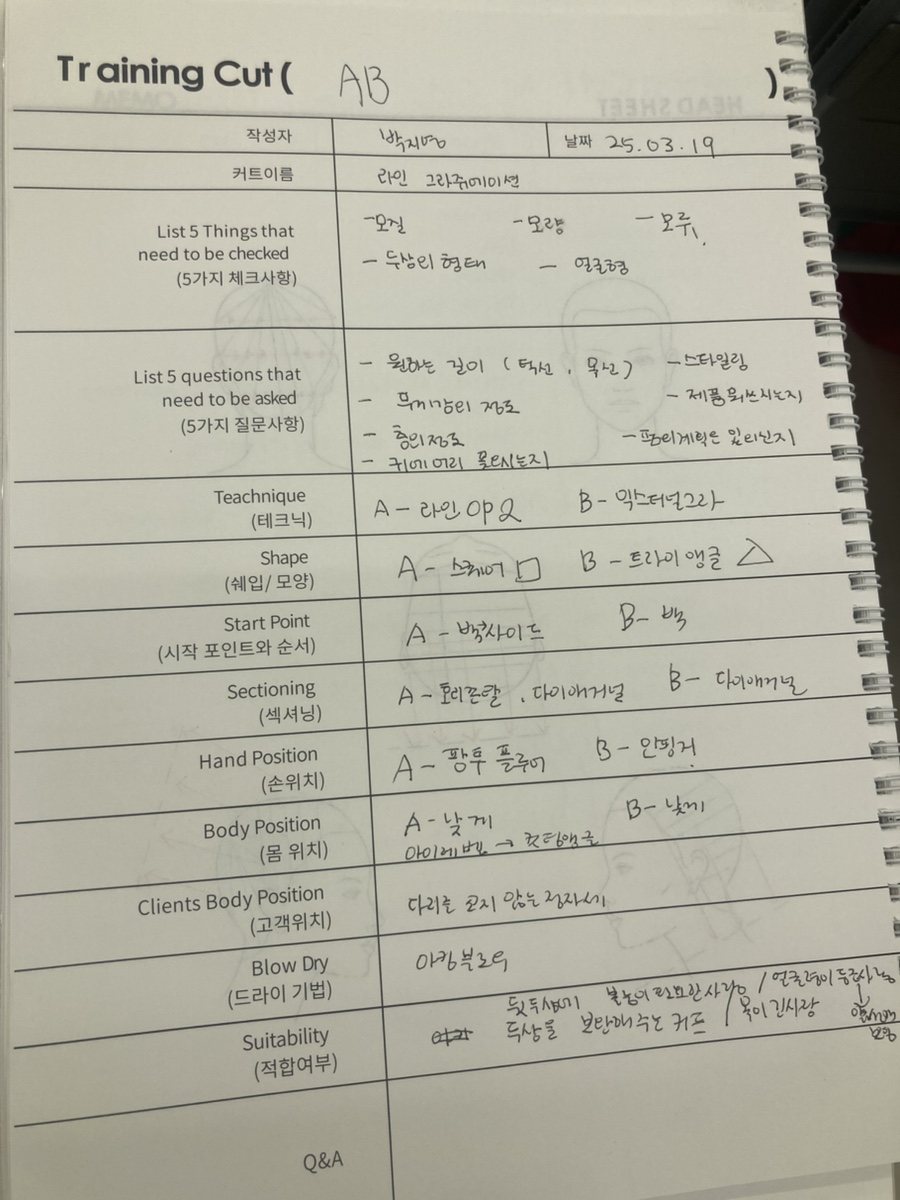 Training Cut ( AB )
작성자 박지영 날짜 25.03.19
커트이름 라인 그라쥬에이션
List 5 Things that
need to be checked
(5가지 체크사항)
-모질 -모량 -모류
- 두상의 형태 - 얼굴형
List 5 questions that
need to be asked
(5가지 질문사항)
- 원하는 길이 (턱선, 목선) -스타일링
- 무게감의 정도 - 제품 뭐쓰시는지
- 층의정도 -펌의계획은 있으신지
- 귀에머리 꽂으시는지
Teachnique
(테크닉)
A- 라인 OP 2 B- 익스터널그라
Shape
(쉐입/ 모양)
A - 스퀘어 □ B - 트라이앵글 △
Start Point
(시작 포인트와 순서)
A - 백사이드 B- 백
Sectioning
(섹셔닝)
A - 호리존탈, 다이애거널 B- 다이애거널
Hand Position
(손위치)
A - 팜투 플로어 B - 인핑거
Body Position
(몸 위치)
A - 낮게 B- 낮게
아이레벨 → 컷팅앵글
Clients Body Position
(고객위치)
다리를 꼬지 않는 정자세
Blow Dry
(드라이 기법)
아킹블로우
Suitability
(적합여부)
볼륨이 필요한사람 /
두상을 보완해주는 커트 / 목이 긴사람
Q&A
HEAD SHEET